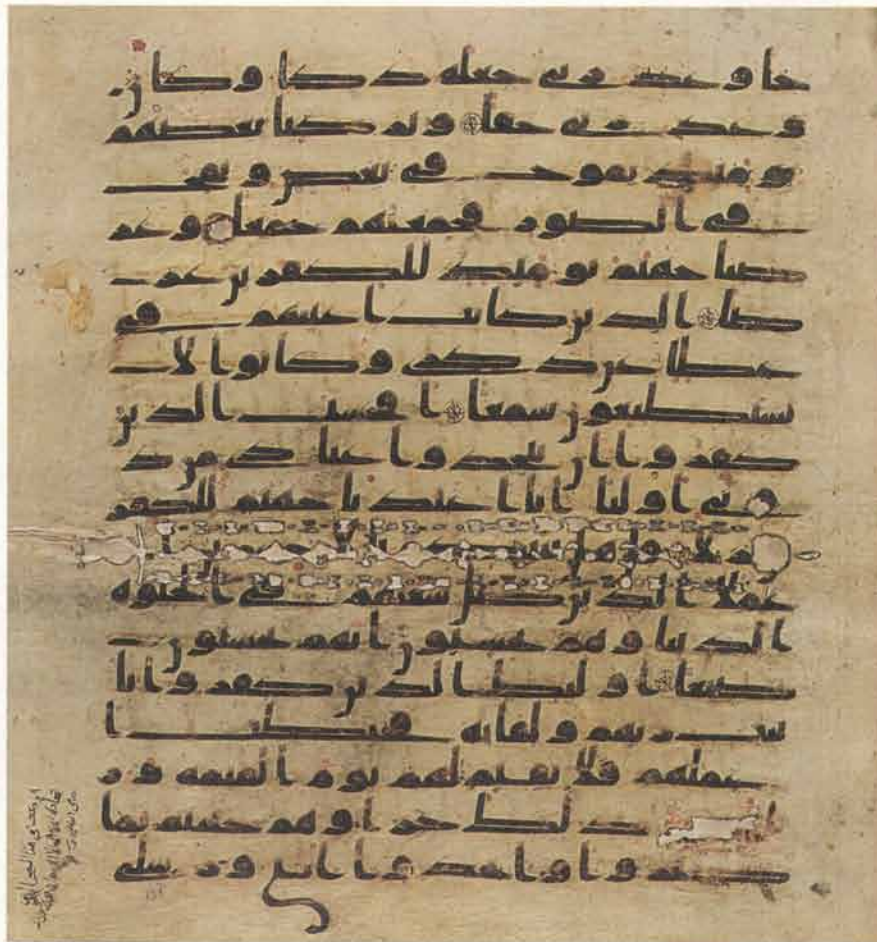 جا وعد ربي جعله دكا وكان
وعد ربي حقا وتركنا بعضهم
يومئذ يموج في بعض ونفخ
في الصور فجمعنهم جمعا وعر
ضنا جهنم يومئذ للكفرين عر
ضا الذين كانت اعينهم في
غطا عن ذكري وكانوا لا
يستطيعون سمعا افحسب الذين
كفروا ان يتخذوا عبادي من د
وني اوليا انا اعتدنا جهنم للكفر
ين نزلا قل هل ننبئكم بالاخسرين ا
عملا الذين ضل سعيهم في الحيوة
الدنيا وهم يحسبون انهم يحسنون
صنعا اولئك الذين كفروا بايا
ت ربهم ولقائه فحبطت ا
عملهم فلا نقيم لهم يوم القيمة وز
ذلك جزاوهم جهنم بما
كفروا واتخذوا ايتي ورسلي